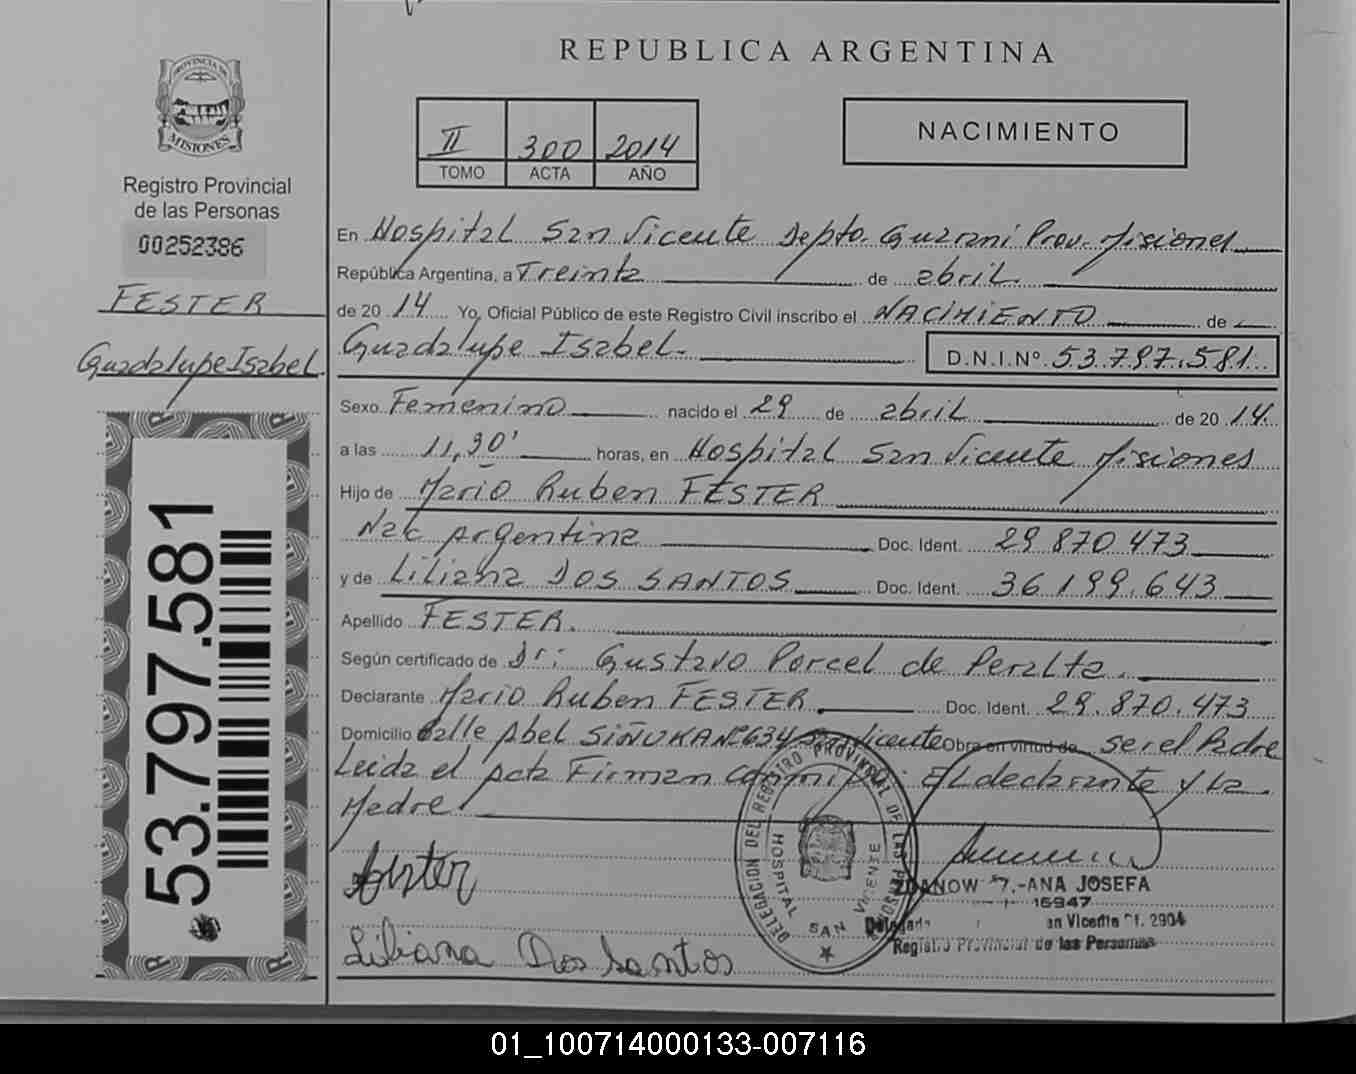 REPUBLICA ARGENTINA
PROVINCIA DE
MISIONES
Registro Provincial
de las Personas
00252386
FESTER
Guadalupe Isabel
53.797.581
II 300 2014
TOMO ACTA AÑO
NACIMIENTO
En Hospital San Vicente Depto. Guarani Prov. Misiones
República Argentina, a Treinta de abril
de 20 14 Yo, Oficial Público de este Registro Civil inscribo el NACIMIENTO de
Guadalupe Isabel. D.N.I.Nº 53.797.581
Sexo Femenino nacido el 29 de abril de 20 14.
a las 11,30' horas, en Hospital San Vicente Misiones
Hijo de Mario Ruben FESTER
Nac Argentina Doc. Ident. 29 870 473
y de Liliana DOS SANTOS Doc. Ident. 36.199.643
Apellido FESTER.
Según certificado de Dr: Gustavo Porcel de Peralta.
Declarante Mario Ruben FESTER Doc. Ident. 29.870.473
Domicilio Calle Abel SIÑUKA Nº 634 San Vicente Obra en virtud de ser el Padre
Leida el Acta Firman conmigo: El declarante y La
Madre
DELEGACION DEL REGISTRO PROVINCIAL DE LAS PERSONAS
HOSPITAL SAN VICENTE
-ANA JOSEFA
16947
Vicente 2904
Registro Provincial de las Personas
Liliana Dos Santos
01_100714000133-007116